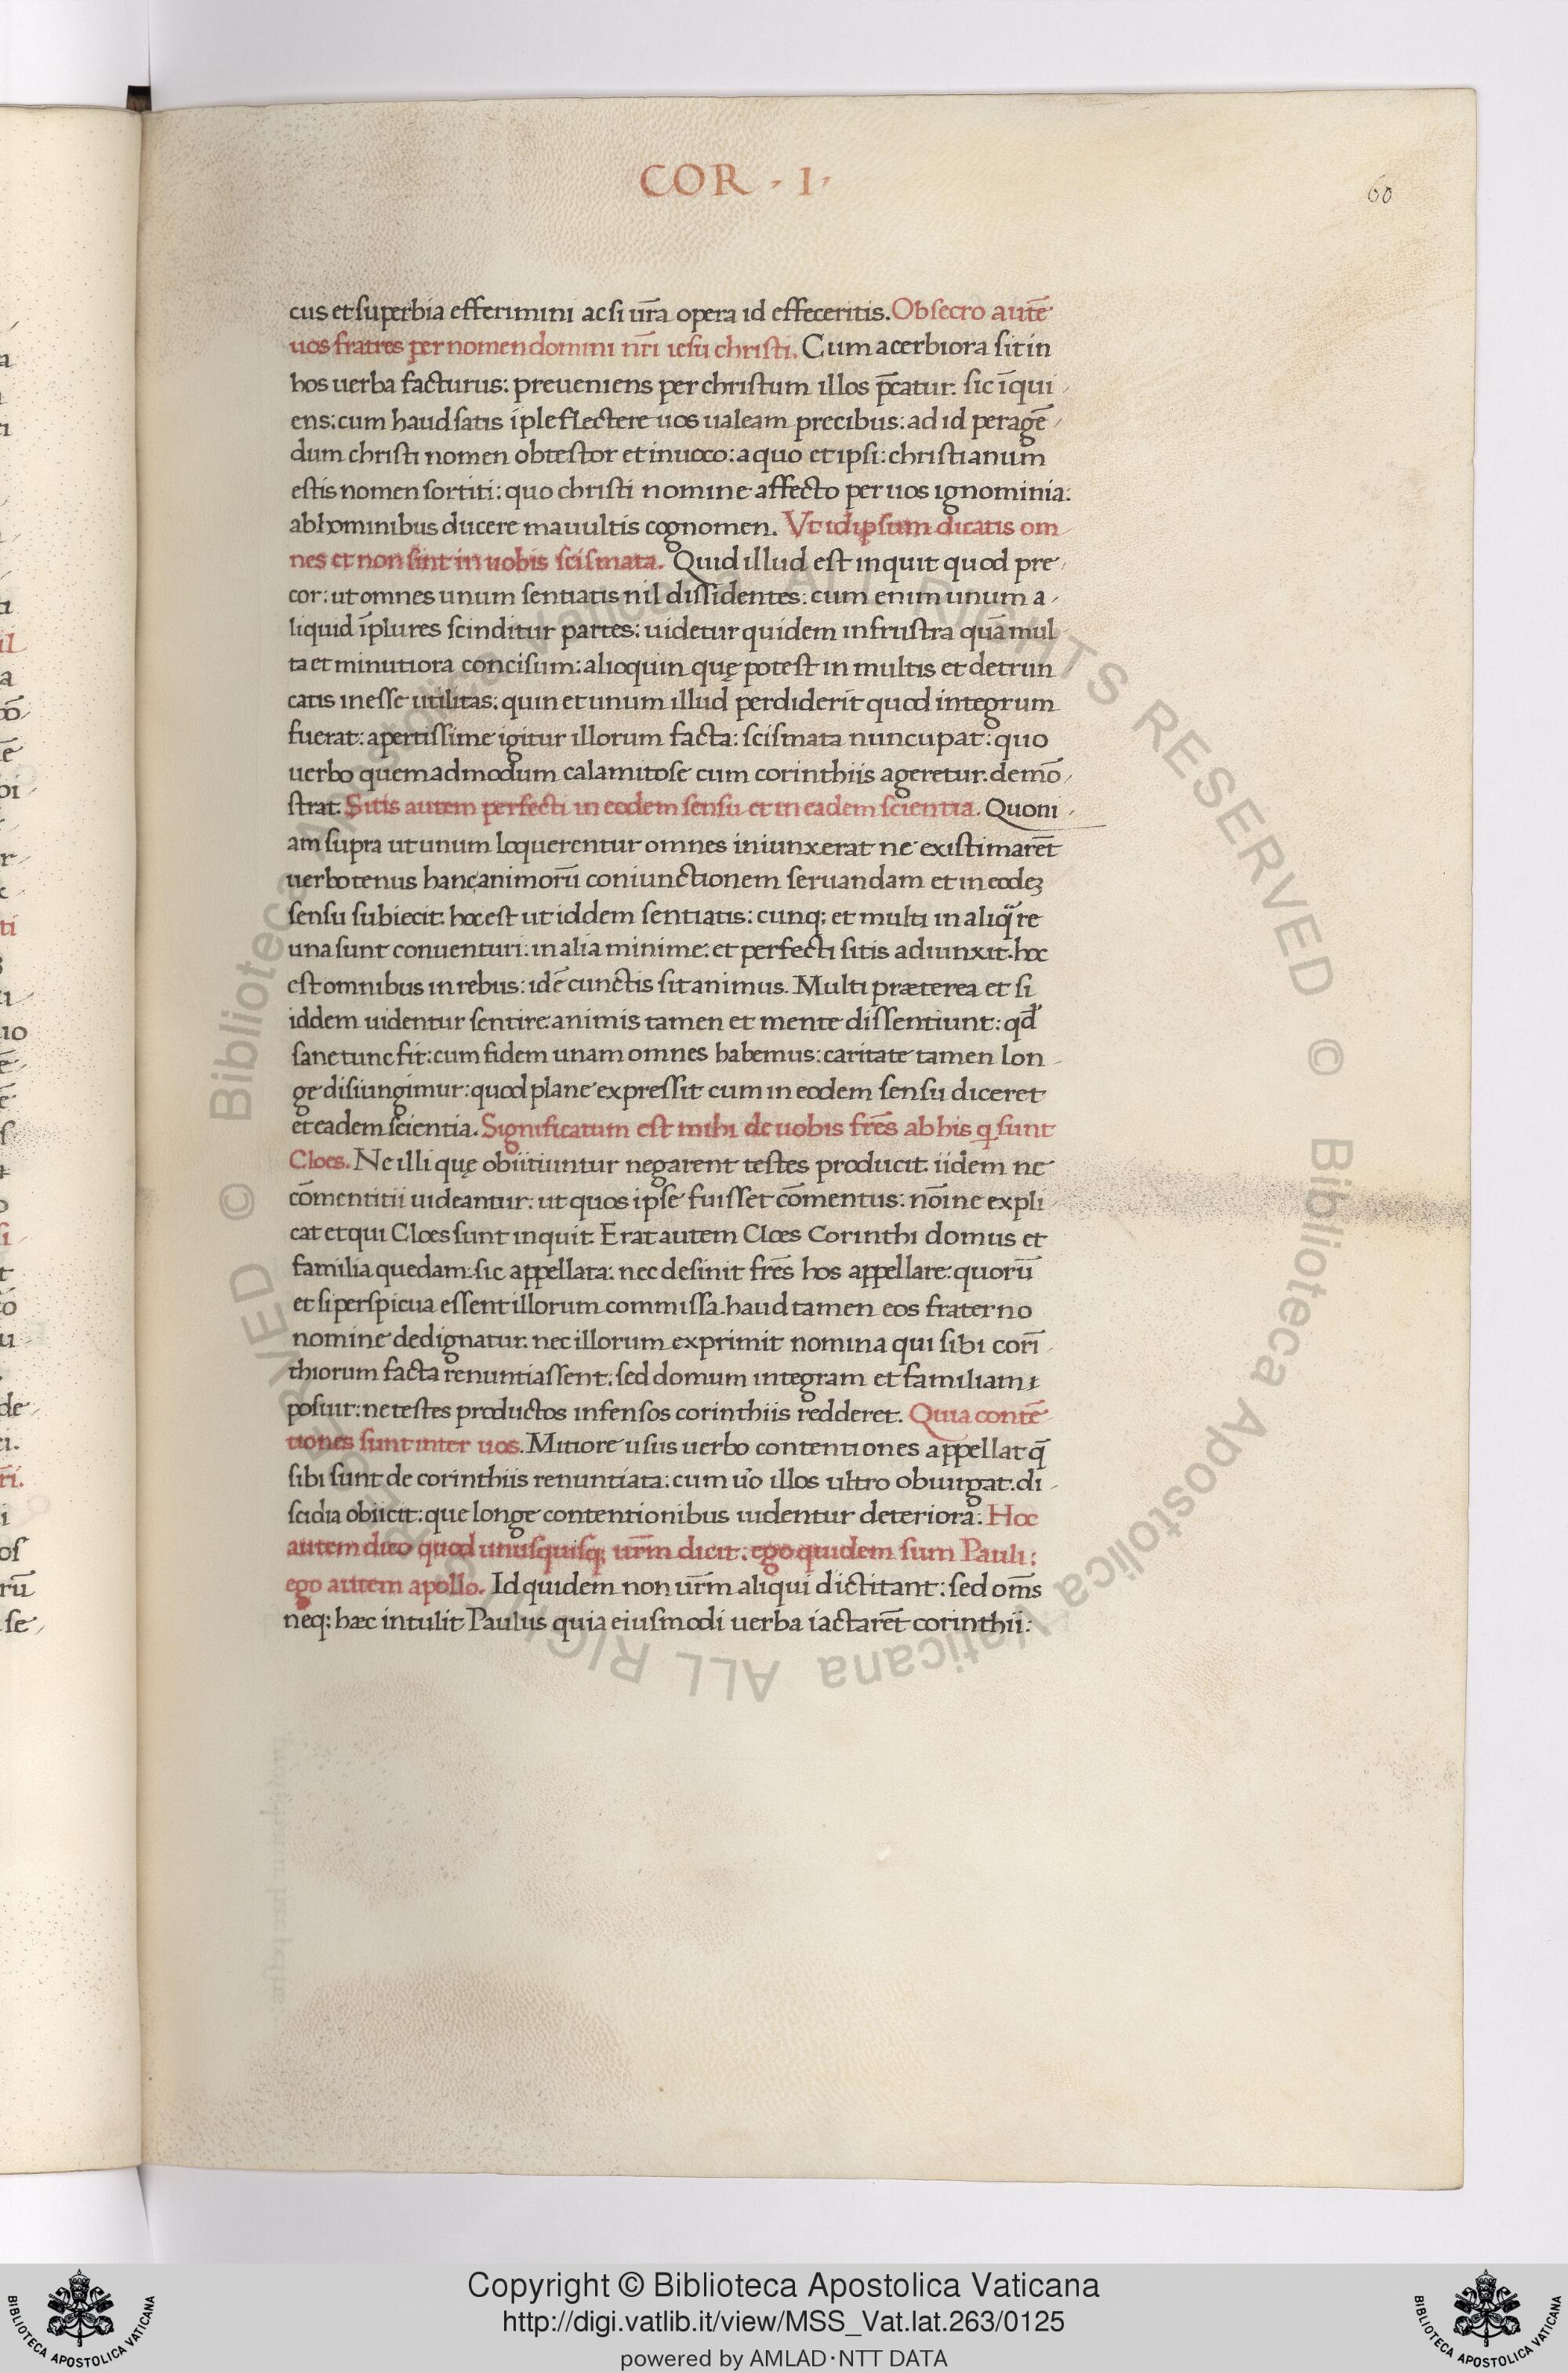 COR · I ·
60
cus et superbia efferimini ac si ur̄a opera id effeceritis. Obsecro autē
uos fratres per nomen domini nr̄i iesu christi. Cum acerbiora sit in
hos uerba facturus: preueniens per christum illos p̄catur. sic īqui
ens: cum haud satis ip̄e flectere uos ualeam precibus: ad id peragē
dum christi nomen obtestor et inuoco: a quo et ipsi: christianum
estis nomen sortiti: quo christi nomine affecto per uos ignominia:
ab hominibus ducere mauultis cognomen. Vt idipsum dicatis om
nes et non sint in uobis scismata. Quid illud est inquit quod pre
cor: ut omnes unum sentiatis nil dissidentes: cum enim unum a
liquid ī plures scinditur partes: uidetur quidem in frustra quā mul
ta et minutiora concisum: alioquin quę potest in multis et detrun
catis inesse utilitas: quin et unum illud perdiderit quod integrum
fuerat: apertissime igitur illorum facta: scismata nuncupat: quo
uerbo quemadmodum calamitose cum corinthiis ageretur. demō
strat. Sitis autem perfecti in eodem sensu et in eadem scientia. Quoni
am supra ut unum loquerentur omnes iniunxerat ne existimarēt
uerbotenus hanc animorū coniunctionem seruandam et in eodeʒ
sensu subiecit. hoc est ut iddem sentiatis: cunq; et multi in aliq̄ re
una sunt conuenturi: in alia minime: et perfecti sitis adiunxit. hoc
est omnibus in rebus: idē cunctis sit animus. Multi præterea et si
iddem uidentur sentire. animis tamen et mente dissentiunt: qd̄
sane tunc fit: cum fidem unam omnes habemus: caritate tamen lon
ge disiungimur: quod plane expressit cum in eodem sensu diceret
et eadem scientia. Significatum est mihi de uobis frēs ab his q sunt
Cloes. Ne illi quę obiitiuntur negarent testes producit. iidem ne
cōmentitii uideantur: ut quos ipse fuisset cōmentus: noīne expli
cat et qui Cloes sunt inquit. Erat autem Cloes Corinthi domus et
familia quedam: sic appellata: nec desinit frēs hos appellare: quorū
et si perspicua essent illorum commissa. haud tamen eos fraterno
nomine dedignatur. nec illorum exprimit nomina qui sibi corī
thiorum facta renuntiassent. sed domum integram et familiam
posuit: ne testes productos infensos corinthiis redderet. Quia contē
tiones sunt inter uos. Mitiore usus uerbo contentiones appellat q̄
sibi sunt de corinthiis renuntiata: cum uo᷎ illos ultro obiurgat. di
scidia obiicit: que longe contentionibus uidentur deteriora. Hoc
autem dico quod unusquisq; ur̄m dicit. ego quidem sum Pauli:
ego autem apollo. Id quidem non ur̄m aliqui dictitant: sed om̄s
neq: hæc intulit Paulus quia eiusmodi uerba iactarēt corinthii:
© Biblioteca Apostolica Vaticana ALL RIGHTS RESERVED © Biblioteca Apostolica Vaticana ALL RIGHTS RESERVED
Copyright © Biblioteca Apostolica Vaticana
http://digi.vatlib.it/view/MSS_Vat.lat.263/0125
powered by AMLAD·NTT DATA
BIBLIOTECA APOSTOLICA VATICANA
BIBLIOTECA APOSTOLICA VATICANA